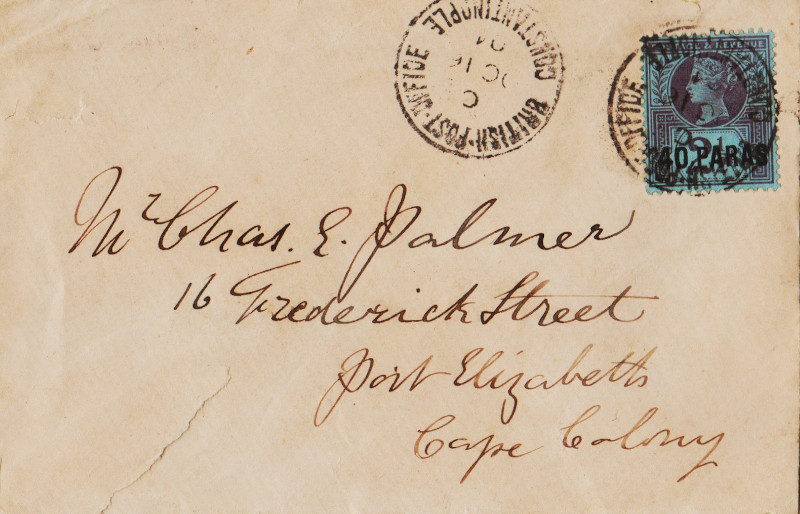 BRITISH·POST·OFFICE
CONSTANTINOPLE
C
OC 16
01
POSTAGE & REVENUE
40 PARAS
OFFICE
Mr Chas. E. Palmer
16 Frederick Street
Port Elizabeth
Cape Colony